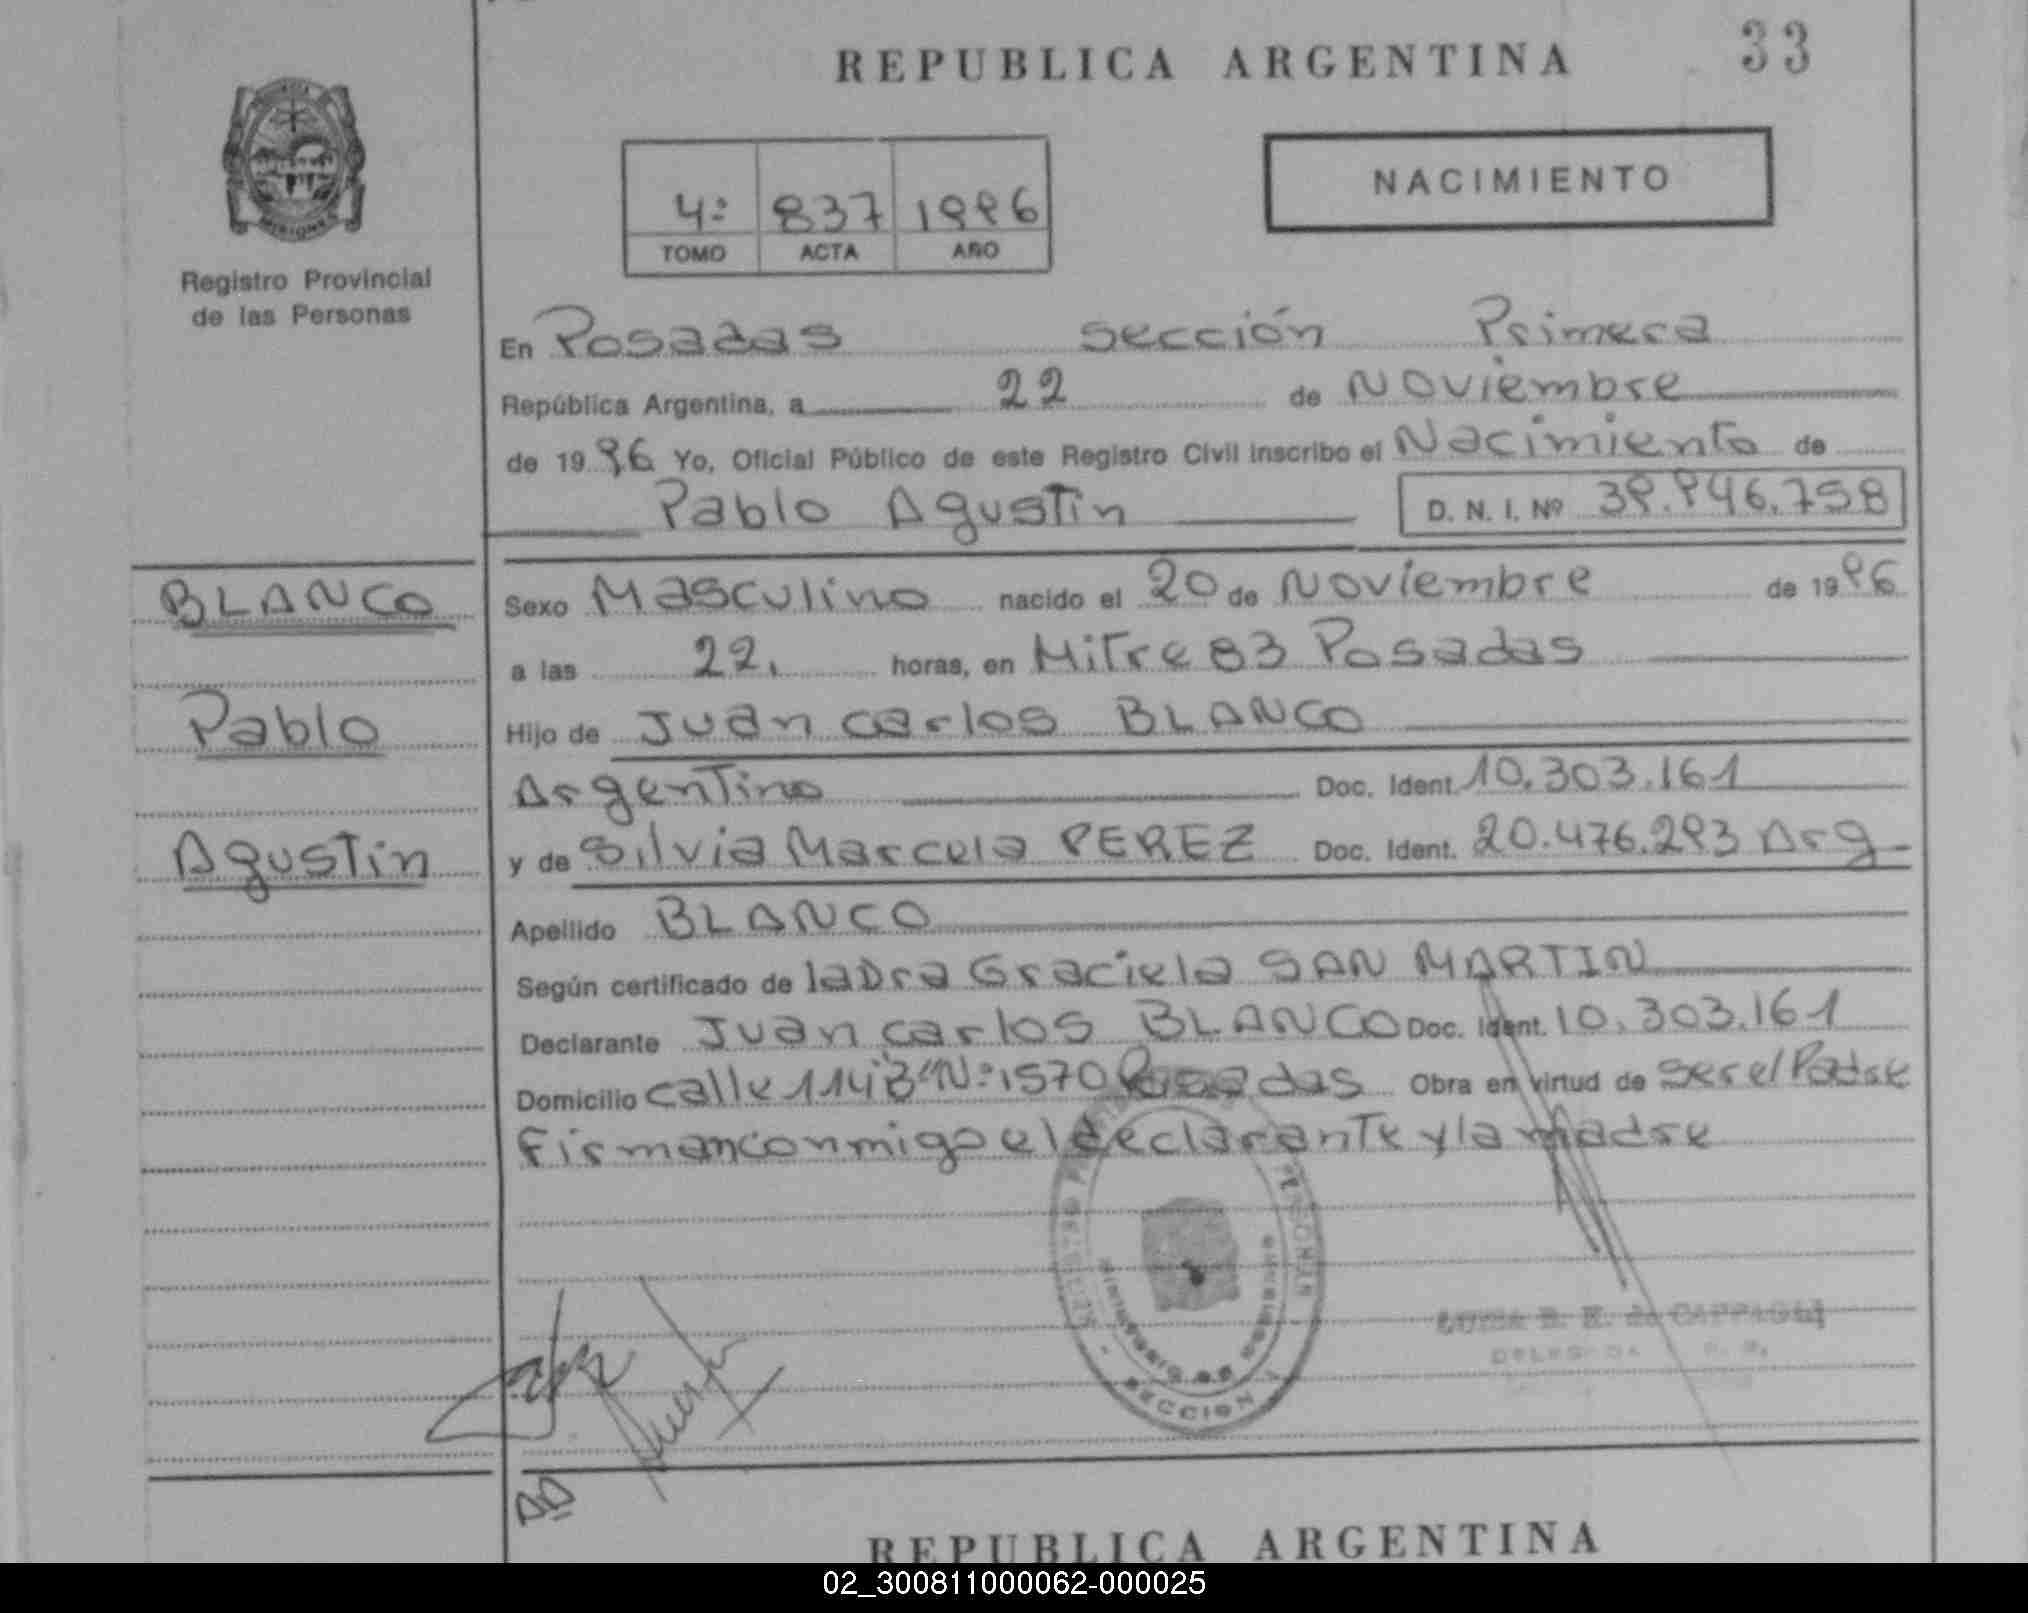 REPUBLICA ARGENTINA 33
MISIONES
Registro Provincial
de las Personas
4º 837 1996
TOMO ACTA AÑO
NACIMIENTO
En Posadas sección Primera
República Argentina, a 22 de Noviembre
de 1996 Yo, Oficial Público de este Registro Civil inscribo el Nacimiento de
Pablo Agustin D. N. I. Nº 39.946.758
BLANCO
Pablo
Agustin
Sexo Masculino nacido el 20 de Noviembre de 1996
a las 22. horas, en Mitre 83 Posadas
Hijo de Juan Carlos BLANCO
Argentino Doc. Ident. 10.303.161
y de Silvia Marcela PEREZ Doc. Ident. 20.476.293 Arg
Apellido BLANCO
Según certificado de la Dra Graciela SAN MARTIN
Declarante Juan Carlos BLANCO Doc. Ident. 10.303.161
Domicilio calle 114 "B" Nº 1570 Posadas Obra en virtud de ser el Padre
Firman conmigo el declarante y la madre
MINISTERIO DE GOBIERNO
SECCION 1
DELEGADA
REPUBLICA ARGENTINA
02_300811000062-000025